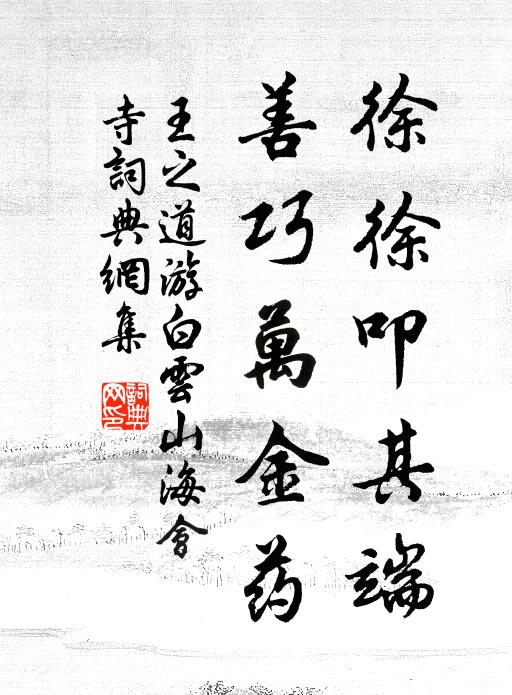 徐徐叩其端
善巧萬金药
王之道游白雲山海會
寺詞典網集
詞典网印